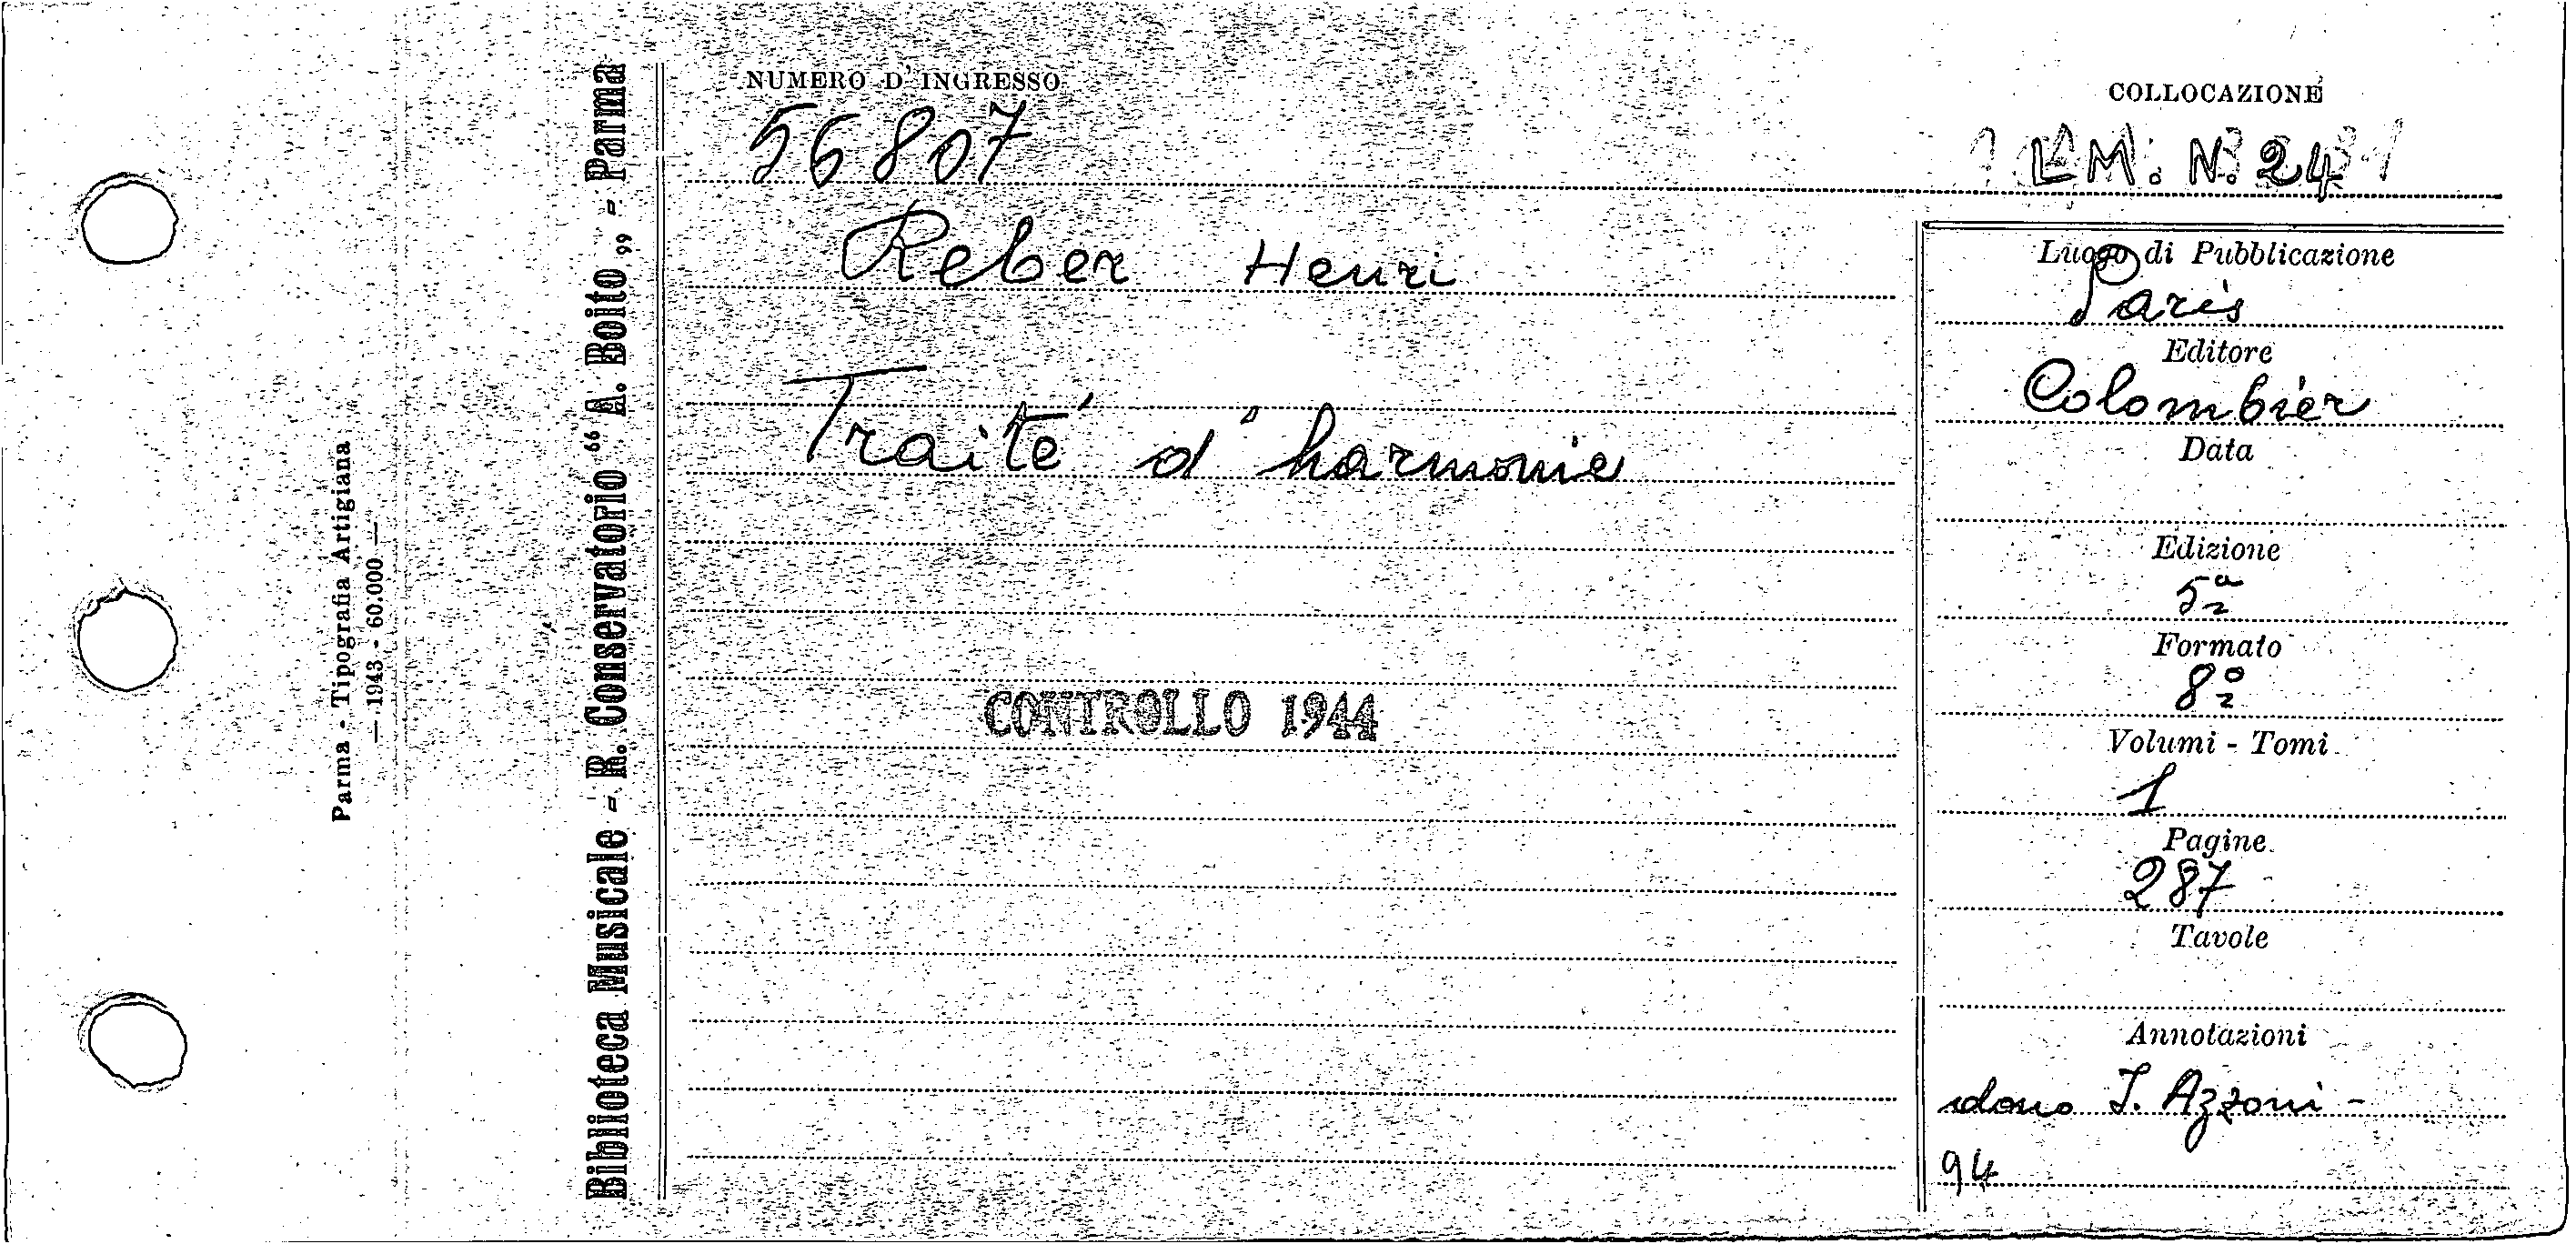 NUMERO D'INGRESSO
56807
COLLOCAZIONE
L M. N. 24
Reber Henri
Traité d'harmonie
CONTROLLO 1944
Luogo di Pubblicazione
Paris
Editore
Colombier
Data
Edizione
5ª
Formato
8º
Volumi - Tomi
1
Pagine
287
Tavole
Annotazioni
dono I. Azzoni -
94
Biblioteca Musicale - R. Conservatorio "A. Boito" - Parma
Parma - Tipografia Artigiana
— 1943 - 60.000 —